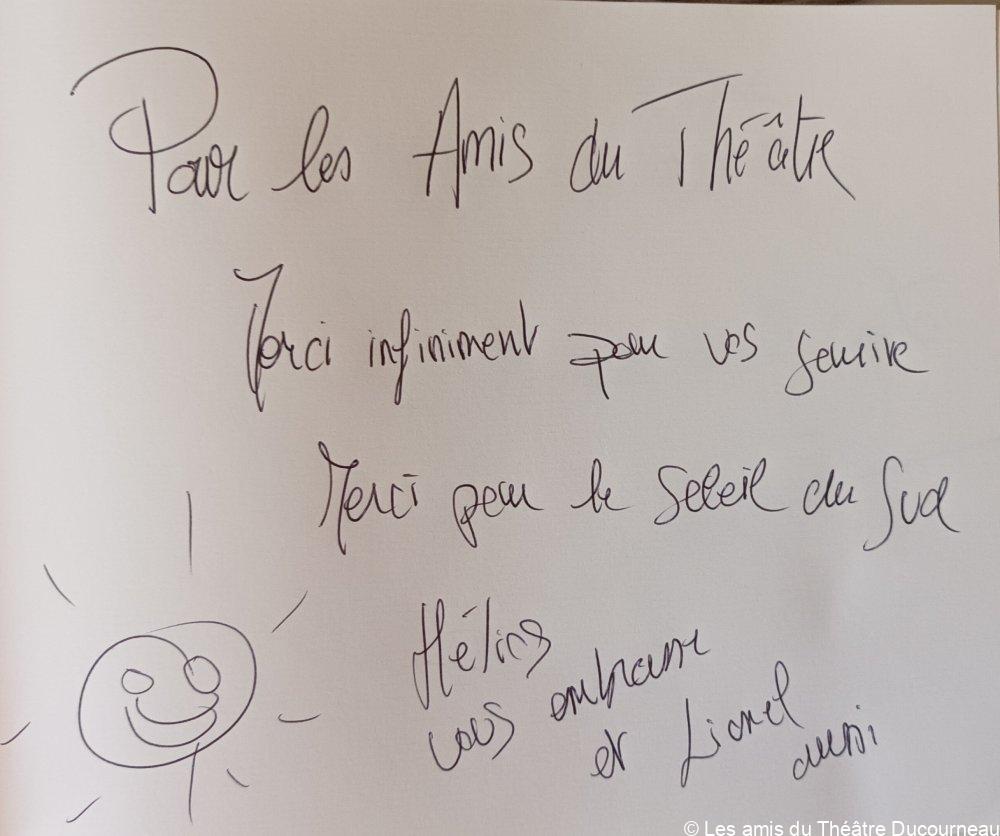 Pour les Amis du Théâtre
Merci infiniment pour vos sourire
Merci pour le Soleil du Sud
Hélios
vous embrasse
et Lionel
aussi
© Les amis du Théâtre Ducourneau